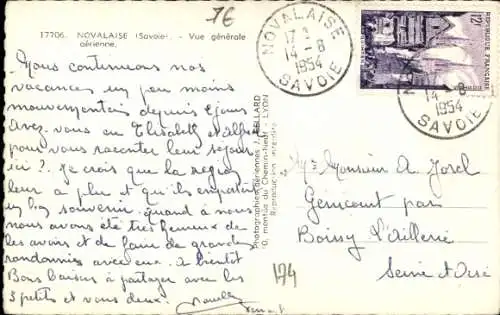 7E
17706. NOVALAISE (Savoie). - Vue générale
aérienne.
Nous continuons nos
vacances un peu moins
mouvementées depuis 2 jours
Avez vous eu Elisabeth et
pour vous raconter leur séjour
ici ? Je crois que la région
leur a plu et qu'ils emportent
un bon souvenir. Quand à nous
nous avons été très heureux de
les avoir et de faire de grandes
randonnées avec eux. A bientôt
Bons baisers à partager avec les
3 petits et vous deux.
Photographies aériennes J. CELLARD
montée du Chemin-Neuf - LYON
Reproduction interdite
NOVALAISE
17
14 - 8
1954
SAVOIE
REPUBLIQUE FRANÇAISE
12F
14 - 8
1954
SAVOIE
Monsieur A
Gencourt par
Boissy L'Aillerie
Seine et Oise
194